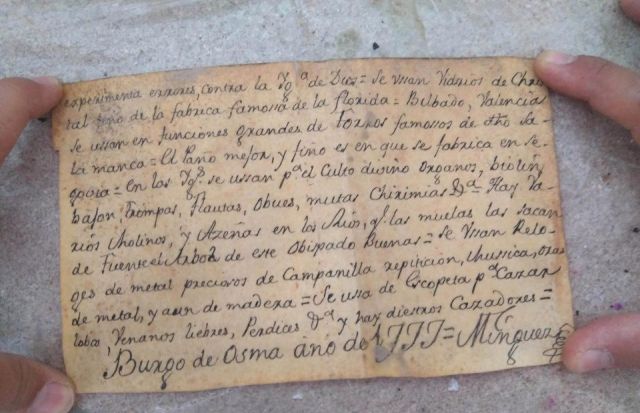 experimenta errores, contra la Yg.ª de Dios = Se vssan Vidrios de Chris
tal fino de la fabrica famossa de la florida = Bilbado, Valencia
se vssan en funciones grandes de Toros famosos de dho Sa-
lamanca = El Pano mejor, y fino es en que se fabrica en Se-
govia = En las Ygs. se vssan p.ª el Culto divino Organos, biolin,
bajon, Trompas, Flautas, Obues, mutas Chirimias &.ª Hay Va-
rios Molinos, y Azeñas en los Rios, q.e las muelas las sacan
de Fuente el Arbol de este Obispado Buenas = Se vssan Relo-
ges de metal preciosos de Campanilla repiticion, Mussica, otras
de metal, y aun de madera = Se vssa de Escopeta p.ª Cazar
lobos, Venanos liebres, Perdices &.ª y hay diestros Cazadores =
Burgo de Osma año de 1777 = Minguez